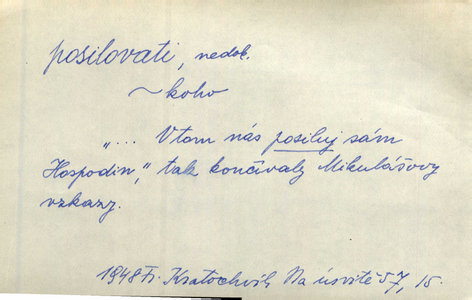 posilovati, nedok.
~ koho
„... V tom nás posiluj sám
Hospodin", tak končívaly Mikulášovy
vzkazy.
1948 Fr. Kratochvíl: Na úsvitě 57, 15.